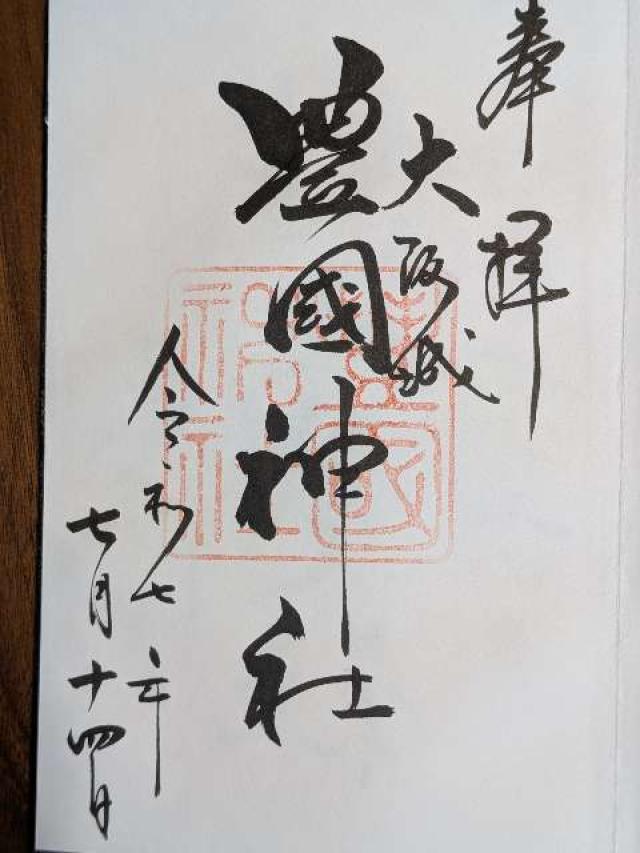 奉拝
大阪城
豊國神社
令和七年
七月十四日
豊國
神社